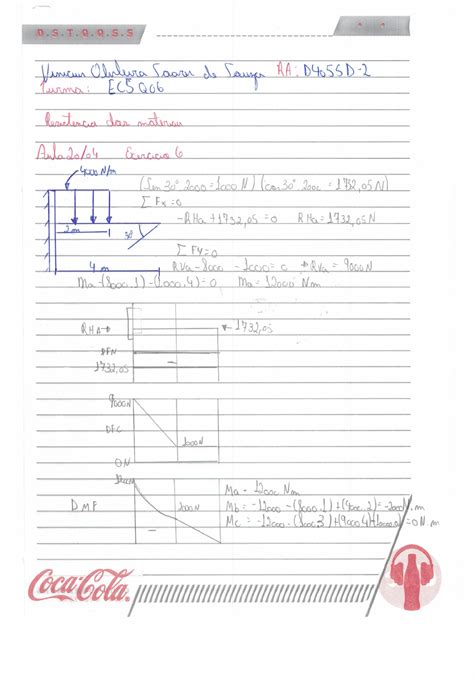 D.S.T.Q.Q.S.S
Vinicius Oliveira Soares de Souza RA: D4055D-2
Turma: EC5Q06
Resistencia dos materiais
Aula 20/04 Exercicio 6
4000 N/m
(Sen 30°. 2000 = 1000 N) (cos 30°. 2000 = 1732,05 N)
Σ Fx = 0
-RHa + 1732,05 = 0 RHa = 1732,05 N
2 m 30°
Σ Fy = 0
4 m RVa - 8000 - 1000 = 0 RVa = 9000 N
Ma - (8000.1) - (1000.4) = 0 Ma = 12000 N.m
RHA 1732,05
DFN
1732,05 -
9000N
DFC
1000N
0N
DMF 2000N
-
Ma = 12000 N.m
Mb = -12000 - (8000.1) + (9000.2) = -2000 N.m
Mc = -12000 - (8000.3) + (9000.4) = 0 N.m
Coca-Cola